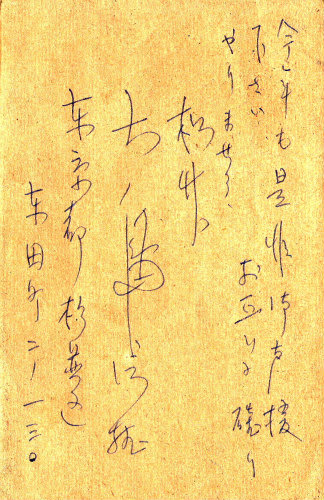 今年も是非御声援
下さい お互いに確り
やりませう、
松井
東京都杉並区
東田町二ノ一三〇